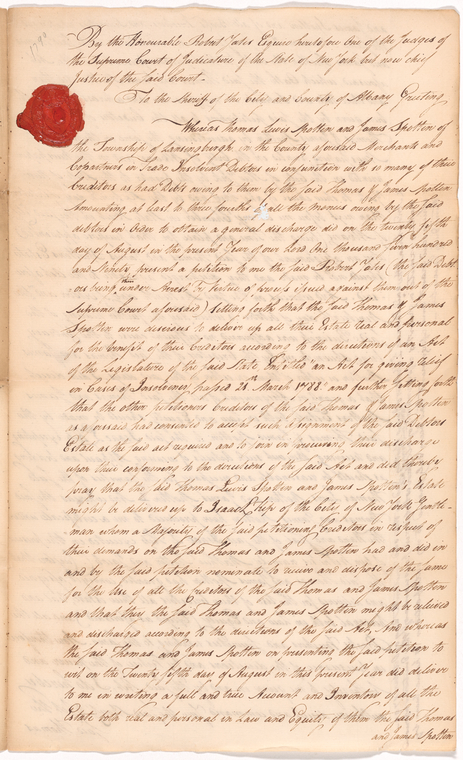 1790
By the Honourable Robert Yates Esquire heretofore One of the Judges of
the Supreme Court of Judicature of the State of New York but now chief
Justice of the said Court.
To the Sheriff of the City and County of Albany Greeting
Whereas Thomas Lewis Spotten and James Spotten of
the Township of Lansingburgh in the County aforesaid Merchants and
Copartners in Trade Insolvent Debtors in conjunction with so many of their
Creditors as had Debts owing to them by the said Thomas & James Spotten
Amounting at least to three fourths of all the monies owing by the said
debtors in Order to obtain a general discharge did on the twenty fifth
day of August in the present Year of our Lord One thousand seven hundred
and Ninety present a petition to me the said Robert Yates (the said Debt
ors being then under Arrest by virtue of Writs issued against them out of the
Supreme Court aforesaid) setting forth that the said Thomas & James
Spotten were desirous to deliver up all their Estate real and personal
for the benefit of their Creditors according to the directions of an Act
of the Legislature of the said State Entitled "an Act for giving relief
in Cases of Insolvency" passed 21st March 1788 and further setting forth
that the other petitioners Creditors of the said Thomas & James Spotten
as aforesaid had consented to accept such Assignment of the said Debtors
Estate as the said act required and to join in procuring their discharge
upon their conforming to the directions of the said Act and did thereby
pray that the said Thomas Lewis Spotten and James Spotten's Estate
might be delivered up to Isaac L Kip of the City of New York Gentle-
man whom a Majority of the said petitioning Creditors in respect of
their demands on the said Thomas and James Spotten had and did in
and by the said petition nominate to receive and dispose of the same
for the Use of all the Creditors of the said Thomas and James Spotten
and that they the said Thomas and James Spotten might be relieved
and discharged according to the directions of the said Act, And whereas
the said Thomas and James Spotten on presenting the said petition to
me on the Twenty fifth day of August in this present Year did deliver
to me in writing a full and true Account and Inventory of all the
Estate both real and personal in Law and Equity of them the said Thomas
and James Spotten